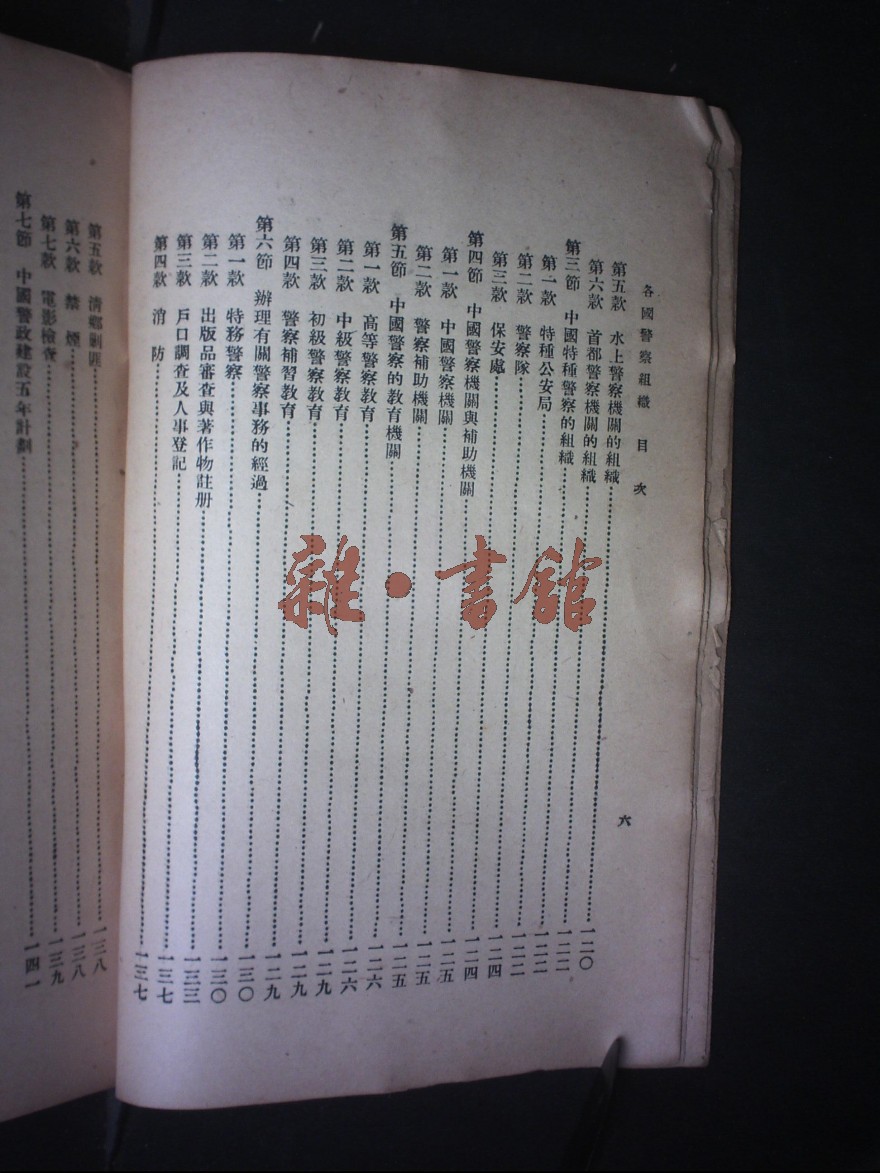 各國警察組織 目次 六
第五款 水上警察機關的組織……一二〇
第六款 首都警察機關的組織……一二二
第三節 中國特種警察的組織……一二二
第一款 特種公安局……一二二
第二款 警察隊……一二四
第三款 保安處……一二四
第四節 中國警察機關與補助機關……一二五
第一款 中國警察機關……一二五
第二款 警察補助機關……一二五
第五節 中國警察的教育機關……一二六
第一款 高等警察教育……一二六
第二款 中級警察教育……一二九
第三款 初級警察教育……一二九
第四款 警察補習教育……一二九
第六節 辦理有關警察事務的經過……一三〇
第一款 特務警察……一三〇
第二款 出版品審查與著作物註册……一三三
第三款 戶口調查及人事登記……一三七
第四款 消防……一三七
第五款 清鄉剿匪……一三八
第六款 禁煙……一三八
第七款 電影檢查……一三九
第七節 中國警政建設五年計劃……一四一
雜·書館